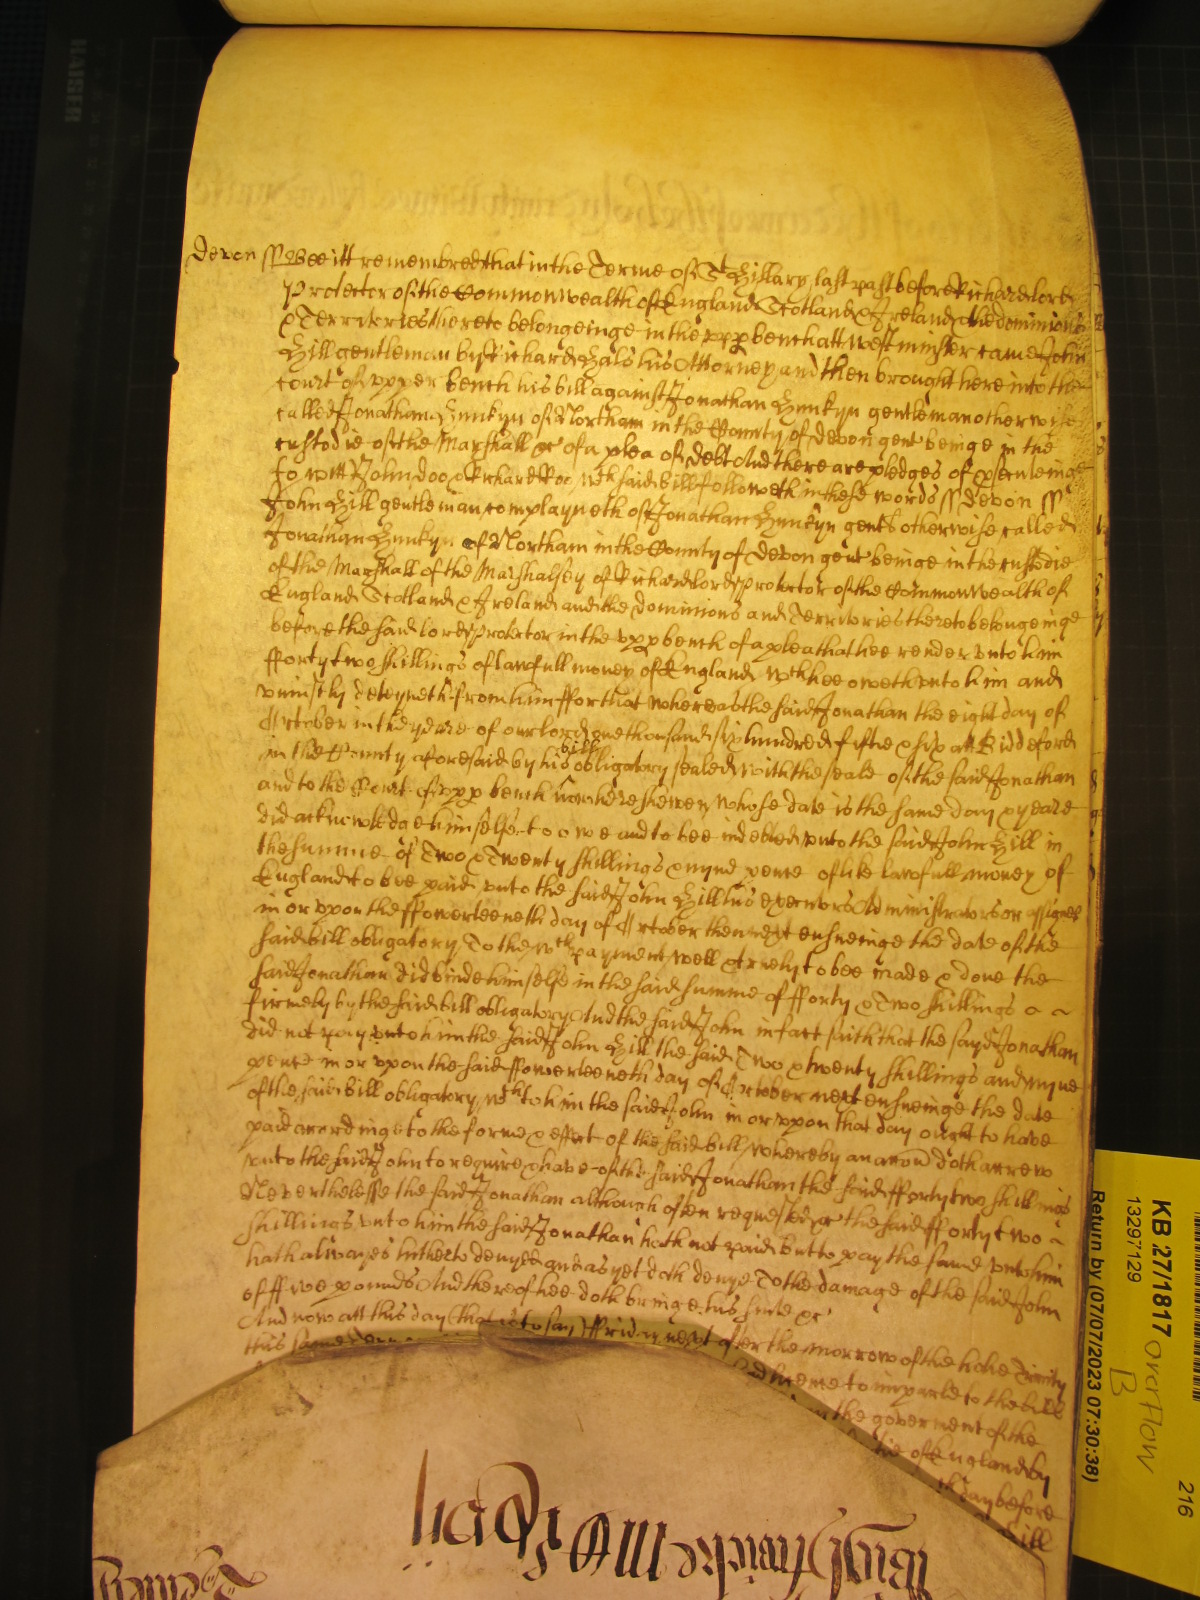 Devon ss Bee itt remembred that in the Terme of St Hillary last past before Richard lord
Protector of the Commonwealth of England Scotland & Ireland & the dominions
& Territories thereto belongeinge in the upp bench att Westminster came John
Hill gentleman by Richard Hals his Attorney and then brought here into the
court of upper bench his bill against Jonathan Hunkyn gentleman otherwise
called Jonathan Hunkyn of Northam in the County of Devon gent beinge in the
custodie of the Marshall &c of a plea of debt And there are pledges of pseuteinge
to witt John Doo & Richard Roo, wch said bill followeth in these words ss Devon ss
John Hill gentleman complayneth of Jonathan Hunkyn gent otherwise called
Jonathan Hunkyn of Northam in the County of Devon gent beinge in the custodie
of the Marshall of the Marshalsey of Richard lord protector of the Commonwealth of
England Scotland & Ireland and the dominions and Territories thereto belongeinge
before the said lord protector in the upp bench of a plea that hee render unto him
fforty two shillings of lawfull money of England wch hee oweth unto him and
uniustly deteyneth from him ffor that whereas the said Jonathan the eight day of
October in the yeare of our lord one thousand six hundred fiftie & six att Biddeford
in the County aforesaid by his bill obligatory sealed with the seale of the said Jonathan
and to the Court of upp bench now here shewen whose date is the same day & yeare
did acknowledge himselfe to owe and to bee indebted unto the said John Hill in
the summe of Two & Twenty shillings & nyne pence of like lawfull money of
England to bee paid unto the said John Hill his executors Administrators or assignes
in or upon the ffowerteeneth day of October then next ensueinge the date of the
said bill obligatory To the wch payment well & truely to bee made & done the
said Jonathan did binde himselfe in the said summe of fforty & Two shillings
firmely by the said bill obligatory And the said John in fact saith that the sayd Jonathan
did not pay unto him the said John Hill the said Two & twenty shillings and nyne
pence in or upon the said ffowerteeneth day of October next ensueinge the date
of the said bill obligatory, wch to him the said John in or upon that day ought to have
paid accordinge to the forme & effect of the said bill, whereby an accon doth accrew
unto the said John to require & have of the said Jonathan the said fforty two shillings
Neverthelesse the said Jonathan although often requested &c the said fforty & two
shillings unto him the said Jonathan hath not paid but to pay the same unto him
hath alwayes hitherto denyed and as yet doth denye To the damage of the said John
of ffive pounds And thereof hee doth bringe his suite &c
And now att this day (that is to say) ffriday next after the morrow of the holie Trinity
this same Terme had licence to imparle to the bill
in the goverment of the
of England by
day before
Hill
KB 27/1817 overflow
B
13297129
Return by (07/07/2023 07:30:38)
216
KAISER